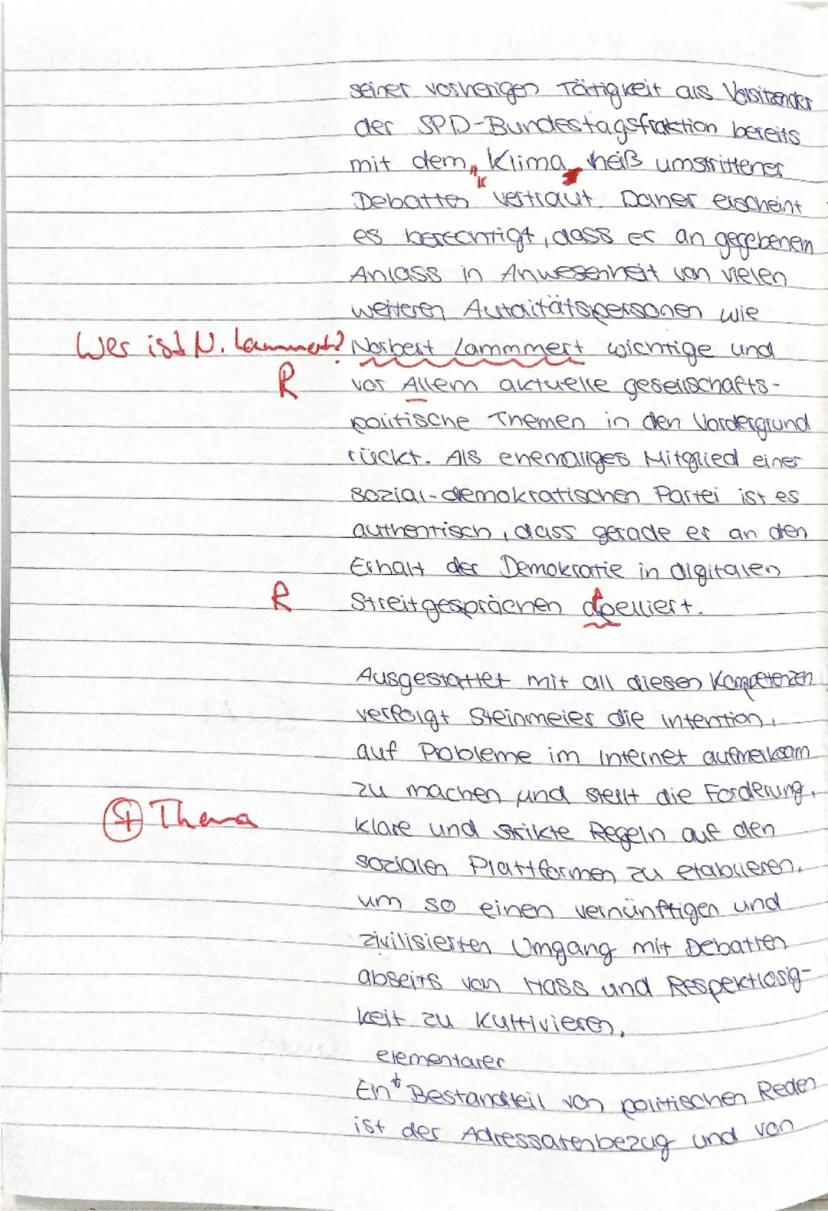 seiner vorherigen Tätigkeit als Vorsitzender
der SPD-Bundestagsfraktion bereits
mit dem „Klima“ heiß umstrittener
Debatten vertraut. Daher erscheint
es berechtigt, dass er an gegebenem
Anlass in Anwesenheit von vielen
weiteren Autoritätspersonen wie
Wer ist N. Lammert? Norbert Lammmert wichtige und
R vor Allem aktuelle gesellschafts-
politische Themen in den Vordergrund
rückt. Als ehemaliges Mitglied einer
sozial-demokratischen Partei ist es
authentisch, dass gerade er an den
Erhalt der Demokratie in digitalen
R Streitgesprächen apelliert.
Ausgestattet mit all diesen Kompetenzen
verfolgt Steinmeier die Intention,
auf Probleme im Internet aufmerksam
zu machen und stellt die Forderung,
Thema klare und strikte Regeln auf den
sozialen Plattformen zu etablieren,
um so einen vernünftigen und
zivilisierten Umgang mit Debatten
abseits von Hass und Respektlosig-
keit zu kultivieren.
elementarer
Ein* Bestandteil von politischen Reden
ist der Adressatenbezug und von